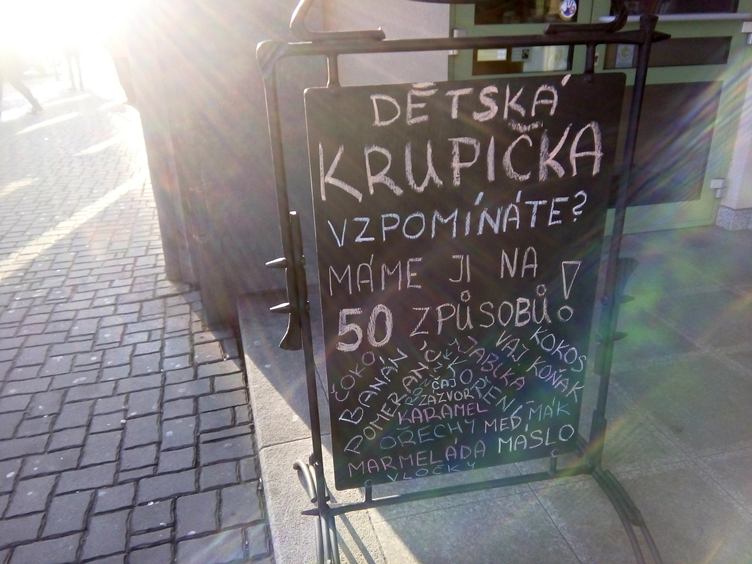 DĚTSKÁ
KRUPIČKA
VZPOMÍNÁTE?
MÁME JI NA
50 ZPŮSOBŮ!
ČOKO
BANÁN
POMERANČ
JABLKA
KOKOS
KOŇAK
ČAJ
ZÁZVOR
KARAMEL
OŘECHY MED, MÁK
MARMELÁDA MASLO
VLOČKY